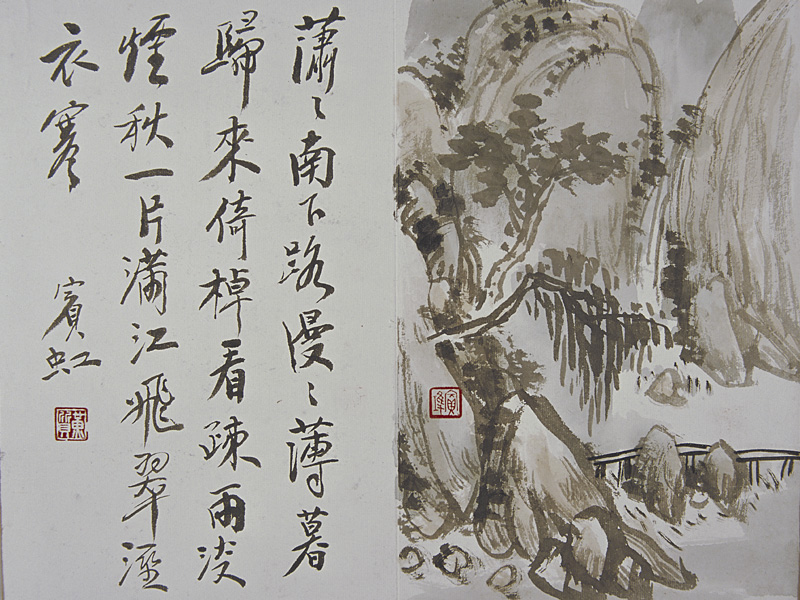 蕭〻南下路漫〻薄暮
歸來倚棹看疎雨淡
煙秋一片瀟江飛翠溼
衣寒
賓虹
黃質